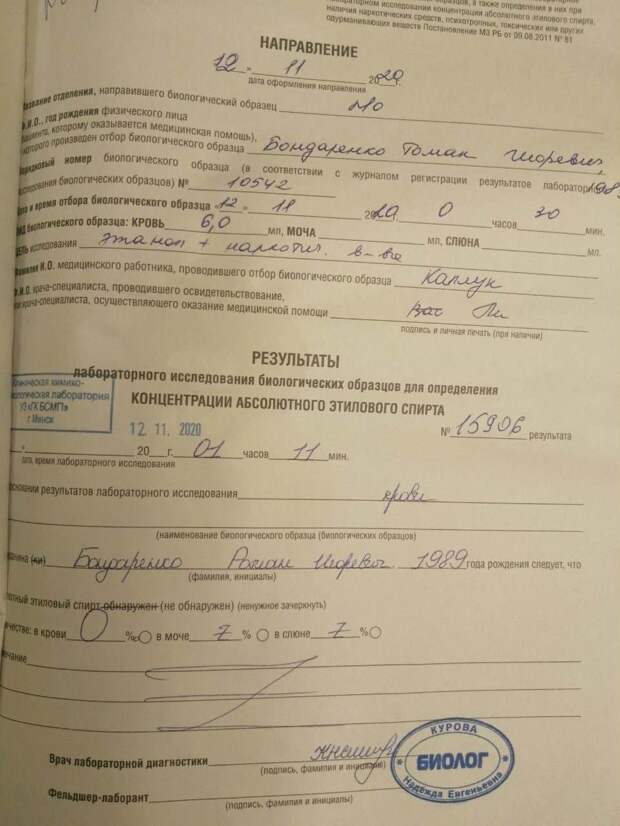 образцов, а также определения в них при
лабораторном исследовании концентрации абсолютного этилового спирта,
наличия наркотических средств, психотропных, токсических или других
одурманивающих веществ Постановление МЗ РБ от 09.08.2011 № 81
НАПРАВЛЕНИЕ
12 - 11 2020г.
дата оформления направления
Название отделения, направившего биологический образец
Ф.И.О., год рождения физического лица
(пациента, которому оказывается медицинская помощь),
у которого произведен отбор биологического образца Бондаренко Роман Игоревич,
Порядковый номер биологического образца (в соответствии с журналом регистрации результатов лабораторн
исследования биологических образцов) № 10542 198
Дата и время отбора биологического образца 12 - 11 2020 0 часов 30 мин.
ВИД биологического образца: КРОВЬ 6,0 мл, МОЧА мл, СЛЮНА мл.
ЦЕЛЬ исследования этанол + наркотич. в-ва
Фамилия И.О. медицинского работника, проводившего отбор биологического образца Каплук
Ф.И.О. врача-специалиста, проводившего освидетельствование,
врача-специалиста, осуществляющего оказание медицинской помощи
подпись и личная печать (при наличии)
РЕЗУЛЬТАТЫ
лабораторного исследования биологических образцов для определения
КОНЦЕНТРАЦИИ АБСОЛЮТНОГО ЭТИЛОВОГО СПИРТА
Клиническая химико-
токсикологическая лаборатория
УЗ «ГК БСМП»
г. Минск
12. 11. 2020
№ 15906 результата
20 г. 01 часов 11 мин.
дата, время лабораторного исследования
основании результатов лабораторного исследования крови
(наименование биологического образца (биологических образцов)
гражданина (ки) Бондаренко Роман Игоревич 1989 года рождения следует, что
(фамилия, инициалы)
абсолютный этиловый спирт обнаружен (не обнаружен) (ненужное зачеркнуть)
количестве: в крови 0 ‰ в моче Z ‰ в слюне Z ‰
Примечание
Врач лабораторной диагностики
(подпись, фамилия и инициалы)
Фельдшер-лаборант
(подпись, фамилия и инициалы)
КУРОВА
БИОЛОГ
Надежда Евгеньевна